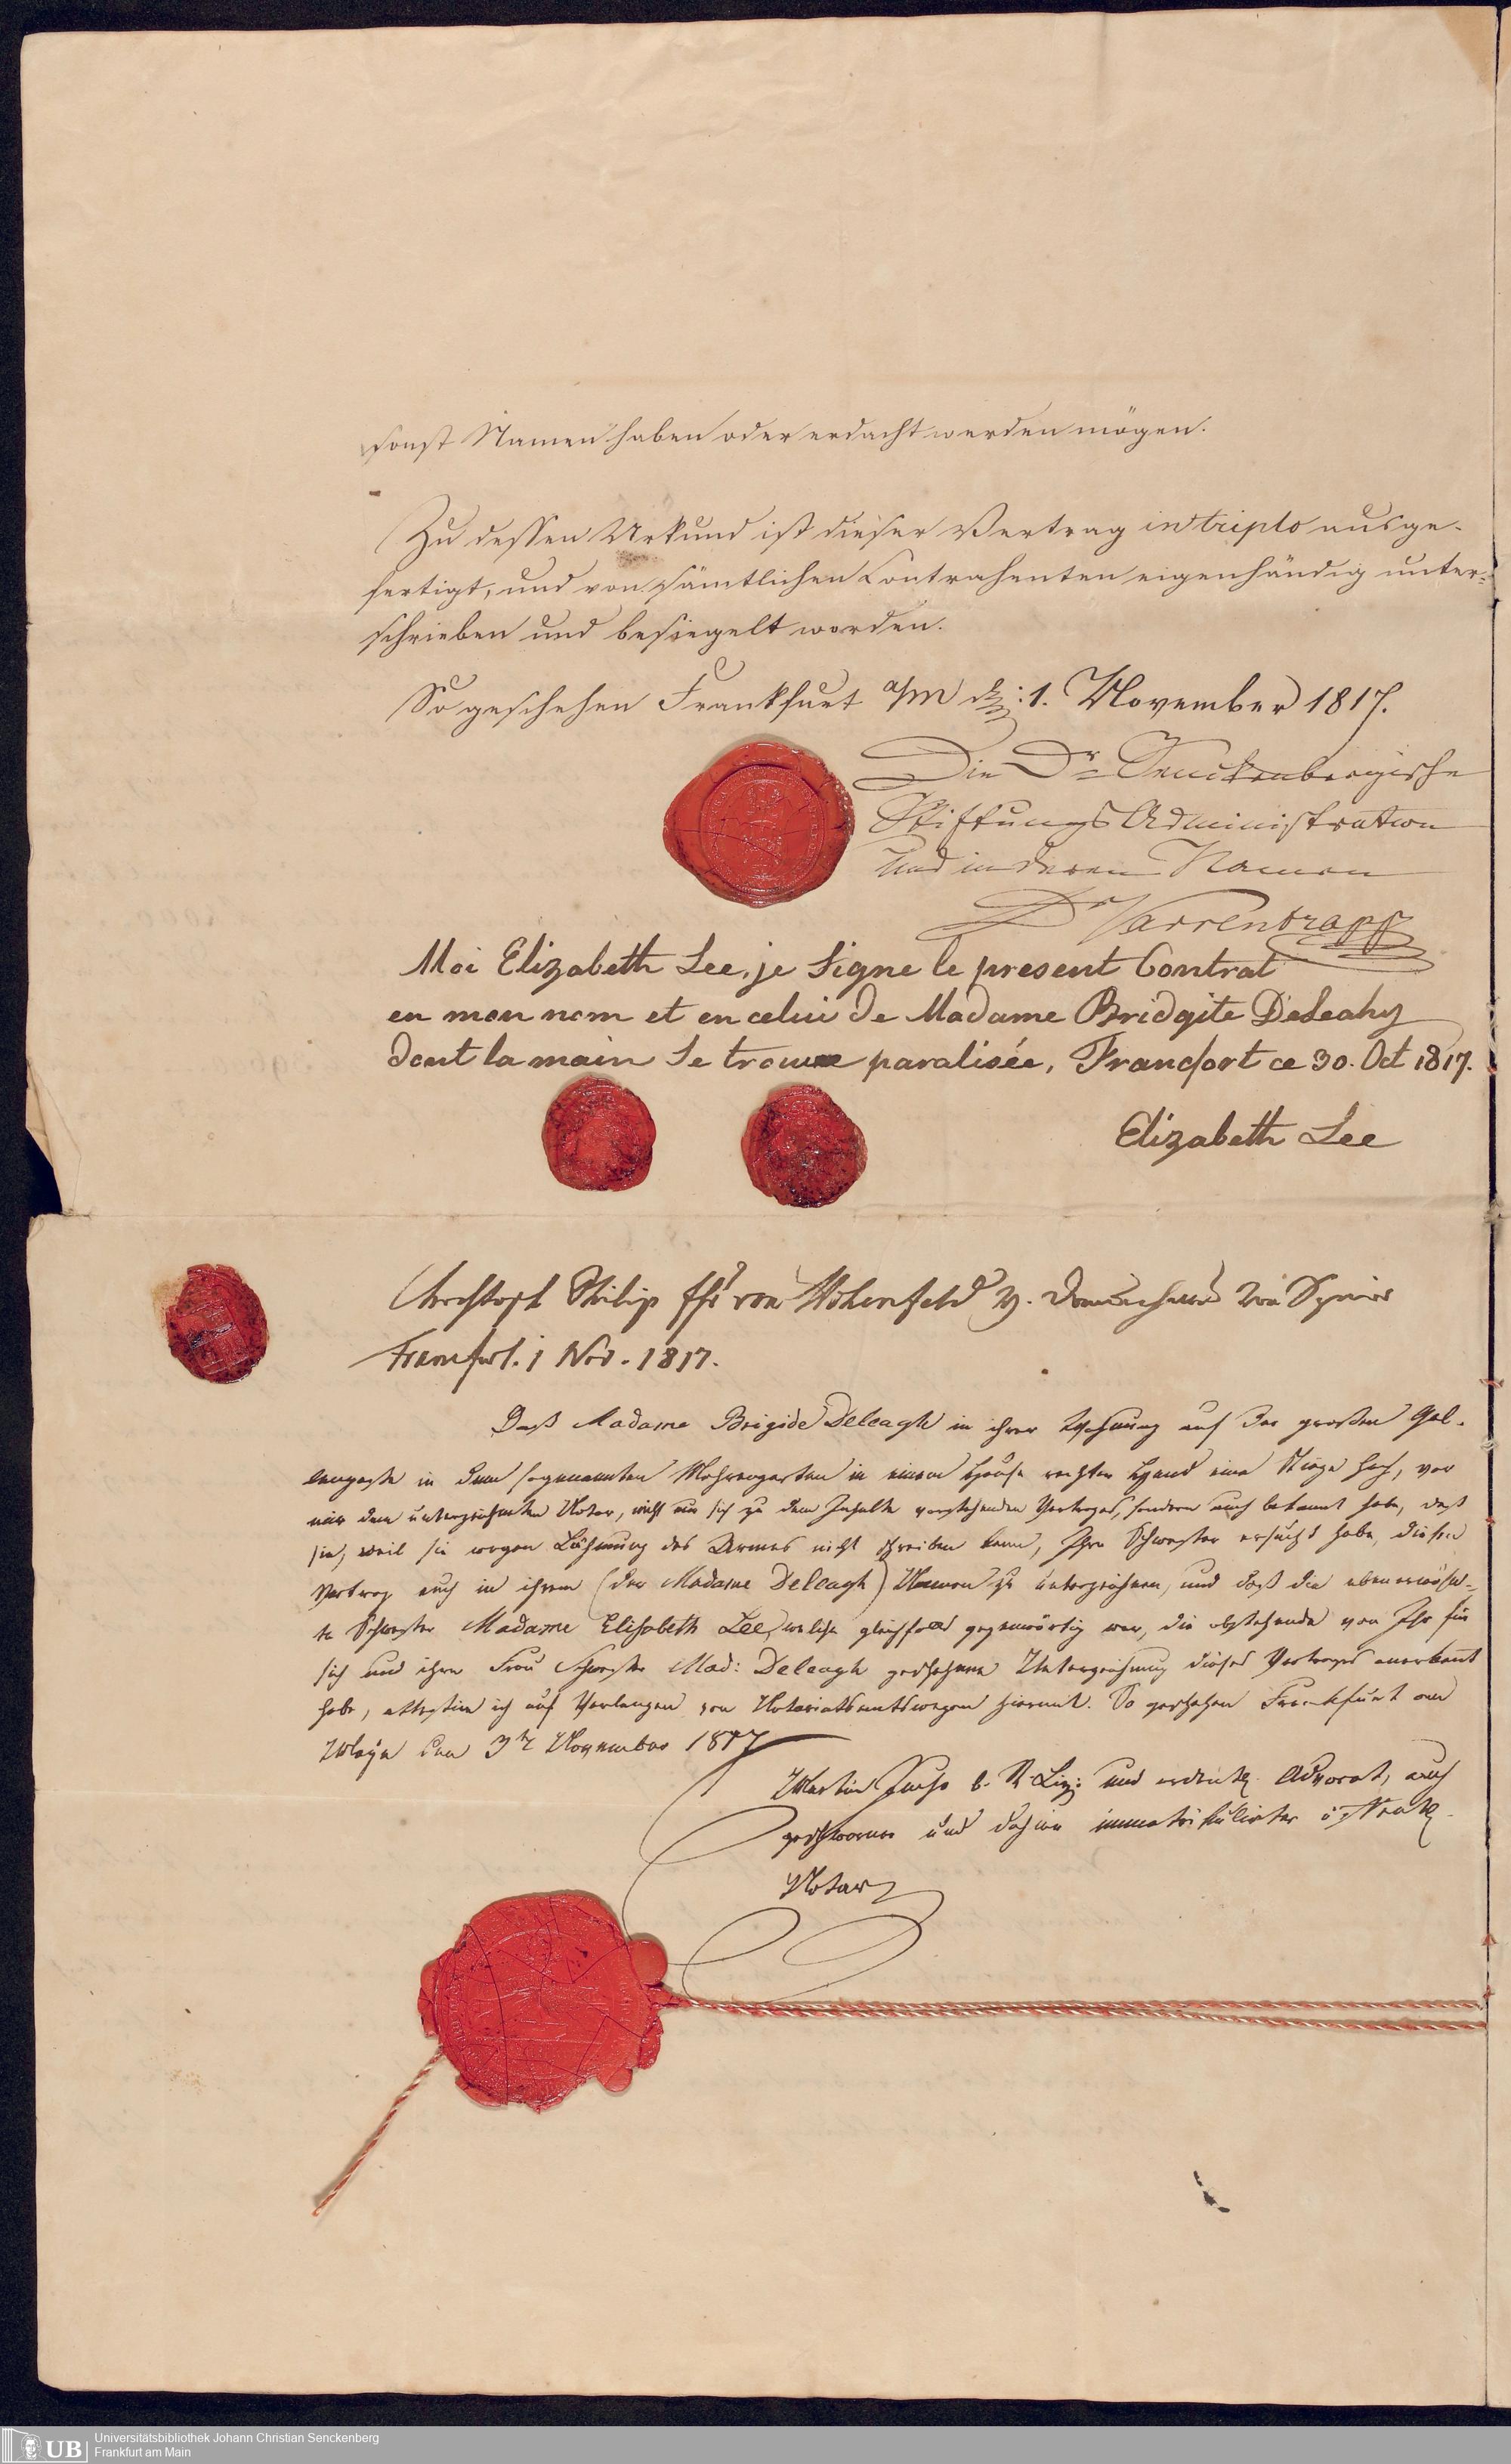 sonst Namen haben oder erdacht werden mögen.
Zu dessen Urkund ist dieser Vertrag in triplo ausge-
fertigt, und von sämtlichen Contrahenten eigenhändig unter-
schrieben und besiegelt worden.
So geschehen Frankfurt a/m d: 1. November 1817.
Die Dr Senckenbergische
Stiftungs Administration
und in deren Namen
Dr Varrentrapp
Moi Elizabeth Lee, je signe le present Contrat
en mon nom et en celui de Madame Bridgite DeLeahy
dont la main se trouve paralisée, Francfort ce 30. Oct 1817.
Elizabeth Lee
Christoph Philip von Hohenfeld Domdechand von Speier
Francfurt. 1 Nov. 1817.
Daß Madame Brigide Deleagh in ihrer Wohnung auf der großen Gal-
lengasse in dem sogenannten Mohrengarten in einem Hause rechter Hand eine Stiege hoch, vor
mir dem unterzeichneten Notar, nicht nur sich zu dem Inhalte vorstehenden Vertrages, sondern auch bekannt habe, daß
sie, weil sie wegen Lähmung des Armes nicht schreiben kann, Ihre Schwester ersucht habe, diesen
Vertrag auch in ihrem (der Madame Deleagh) Namen zu unterzeichnen, und daß die ebenerwähn-
te Schwester Madame Elisabeth Lee, welche gleichfalls gegenwärtig war, die obstehende von Ihr für
sich und ihre Frau Schwester Mad: Deleagh geschehene Unterzeichnung dieses Vertrages anerkannt
habe, attestire ich auf Verlangen von Notariatsamtswegen hiermit. So geschehen Frankfurt am
Mayn den 3t November 1817
Martin b. R. Liz: und Advocat, auch
geschworner und dahier immatrikulirter
Notar
UB
Universitätsbibliothek Johann Christian Senckenberg
Frankfurt am Main